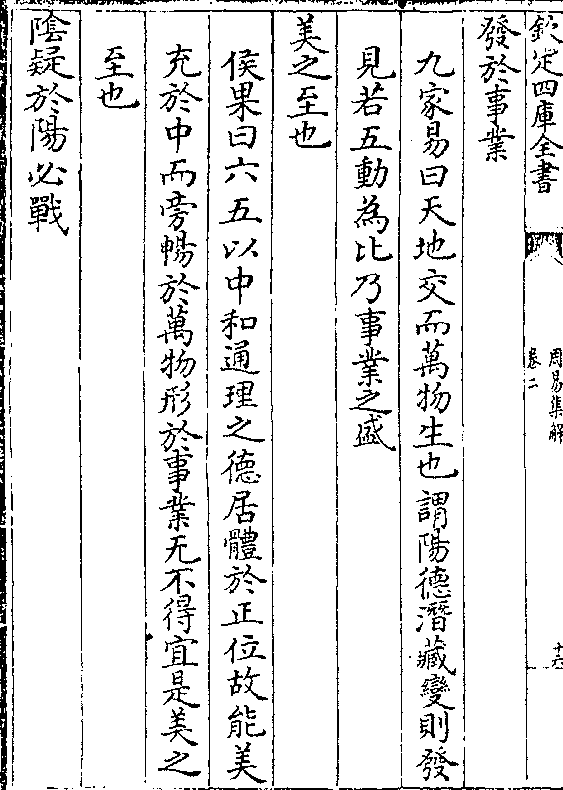 欽定四庫全書
周易集解
卷二
十六
發於事業
九家易曰天地交而萬物生也謂陽德潛藏變則發
見若五動為比乃事業之盛
美之至也
侯果曰六五以中和通理之德居體於正位故能美
充於中而旁暢於萬物形於事業无不得宜是美之
至也
陰疑於陽必戰